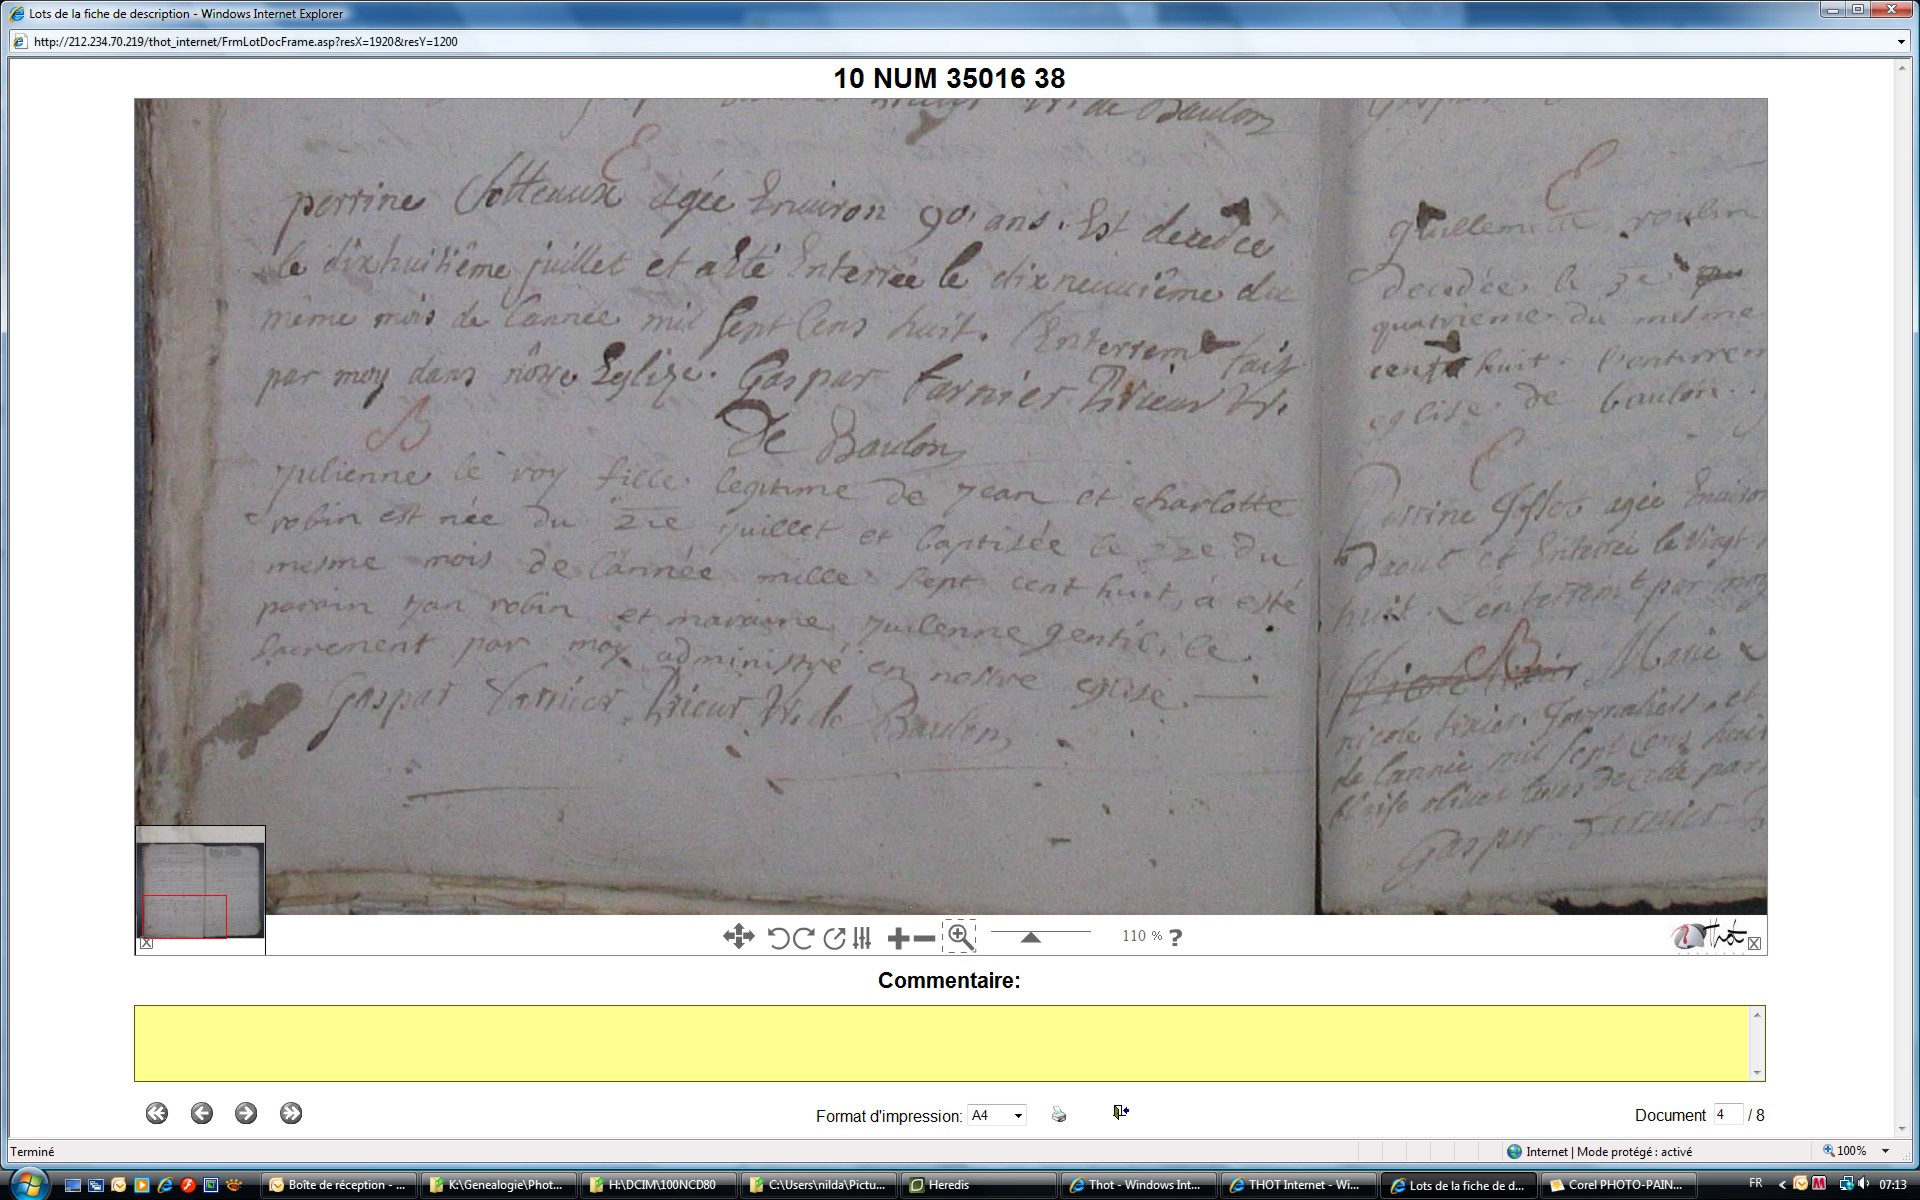 Lots de la fiche de description - Windows Internet Explorer
http://212.234.70.219/thot_internet/FrmLotDocFrame.asp?resX=1920&resY=1200
10 NUM 35016 38
de Baulon
E
perrine Sotteaux agée Environ 90 ans. Est decedée
le dixhuitiême juillet et a été Enterrée le dixneuuiême du
même mois de lannée mil sept Cens huit. l'Enterrem^t fait
par moy dans nôtre Eglize. Gaspar tarnier Prieur Rr.
De Baulon
B
Julienne le roy fille legitime de Jean et charlotte
robin est née du 21e Juillet et baptisée le 22e du
mesme mois de l'année mille sept cent huit, a esté
parain Jan robin et maraine Julienne gentil, le
sacrement par moy administré en nostre eglise
Gaspar Tarnier Prieur Rr. de Baulon
E
guillemette roulin
decedée le 3e
quatrieme du mesme
cents huit. l'enterrem
eglise de baulon.
E
Perrine agée Enuiron
daout et Enterrée le Vingt
huit. L'enterrem^t par moy
B
Marie
nicole tixier.
de lannée mil sept cens huit
par
Gaspar Tarnier
110 % ?
Thot
Commentaire:
Format d'impression: A4
Document 4 / 8
Terminé
Internet | Mode protégé : activé
100%
Boîte de réception - ...
K:\Genealogie\Phot...
H:\DCIM\100NCD80
C:\Users\nilda\Pictu...
Heredis
Thot - Windows Int...
THOT Internet - Wi...
Lots de la fiche de d...
Corel PHOTO-PAIN...
FR
07:13